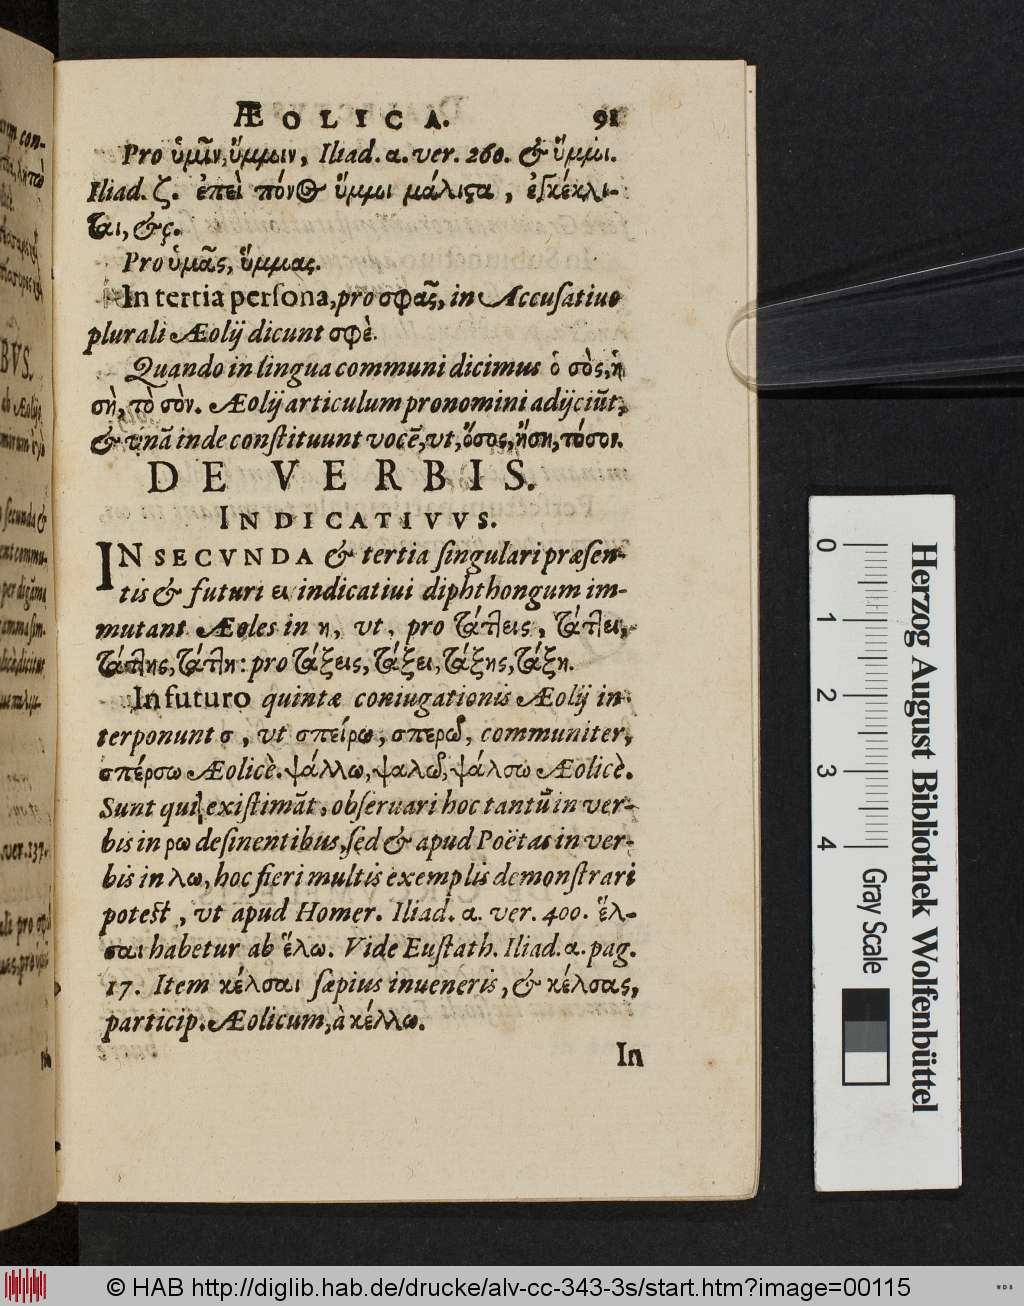 ÆOLICA. 91
Pro ὑμῖν, ὕμμιν, Iliad. α. ver. 260. & ὕμμι.
Iliad. ζ. ἐπεὶ πόνος ὕμμι μάλιϛα,
ται, &c.
Pro ὑμᾶς, ὕμμας.
In tertia perſona, pro σφᾶς, in Accuſatiuo
plurali Æolij dicunt σφὲ.
Quando in lingua communi dicimus ὁ σὸς, ἡ
σὴ, τὸ σὸν. Æolij articulum pronomini adijciũt,
& vnã inde conſtituunt vocẽ, vt, ὅσος, ἥση, τόσον.
DE VERBIS.
INDICATIVVS.
IN SECVNDA & tertia ſingulari præſen-
tis & futuri ει indicatiui diphthongum im-
mutant Æoles in η, vt, pro τάτλεις, τάτλει,
τάτλης, τάτλη: pro τάξεις, τάξει, τάξης, τάξη.
In futuro quintæ coniugationis Æolij in-
terponunt σ, vt σπείρω, σπερῶ, communiter,
σπέρσω Æolicè. ψάλλω, ψαλῶ, ψάλσω Æolicè.
Sunt qui exiſtimãt, obſeruari hoc tantũ in ver-
bis in ρω deſinentibus, ſed & apud Poëtas in ver-
bis in λω, hoc fieri multis exemplis demonſtrari
poteſt, vt apud Homer. Iliad. α. ver. 400. ἕλ-
σαι habetur ab ἕλω. Vide Euſtath. Iliad. α. pag.
17. Item κέλσαι ſæpius inueneris, & κέλσας,
particip. Æolicum, à κέλλω.
In
0 1 2 3 4
Gray Scale
Herzog August Bibliothek Wolfenbüttel
© HAB http://diglib.hab.de/drucke/alv-cc-343-3s/start.htm?image=00115